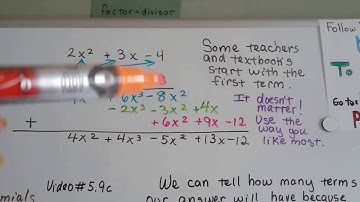 factor = divisor
2x² + 3x - 4
6x³ - 8x²
- 2x³ - 3x² + 4x
+ 6x² + 9x - 12
+
4x² + 4x³ - 5x² + 13x - 12
Some teachers
and textbooks
start with the
first term.
It doesn't
matter!
Use the
way you
like most.
Follow
To
Go to:
Video # 5.9c
We can tell how many terms
our answer will have because